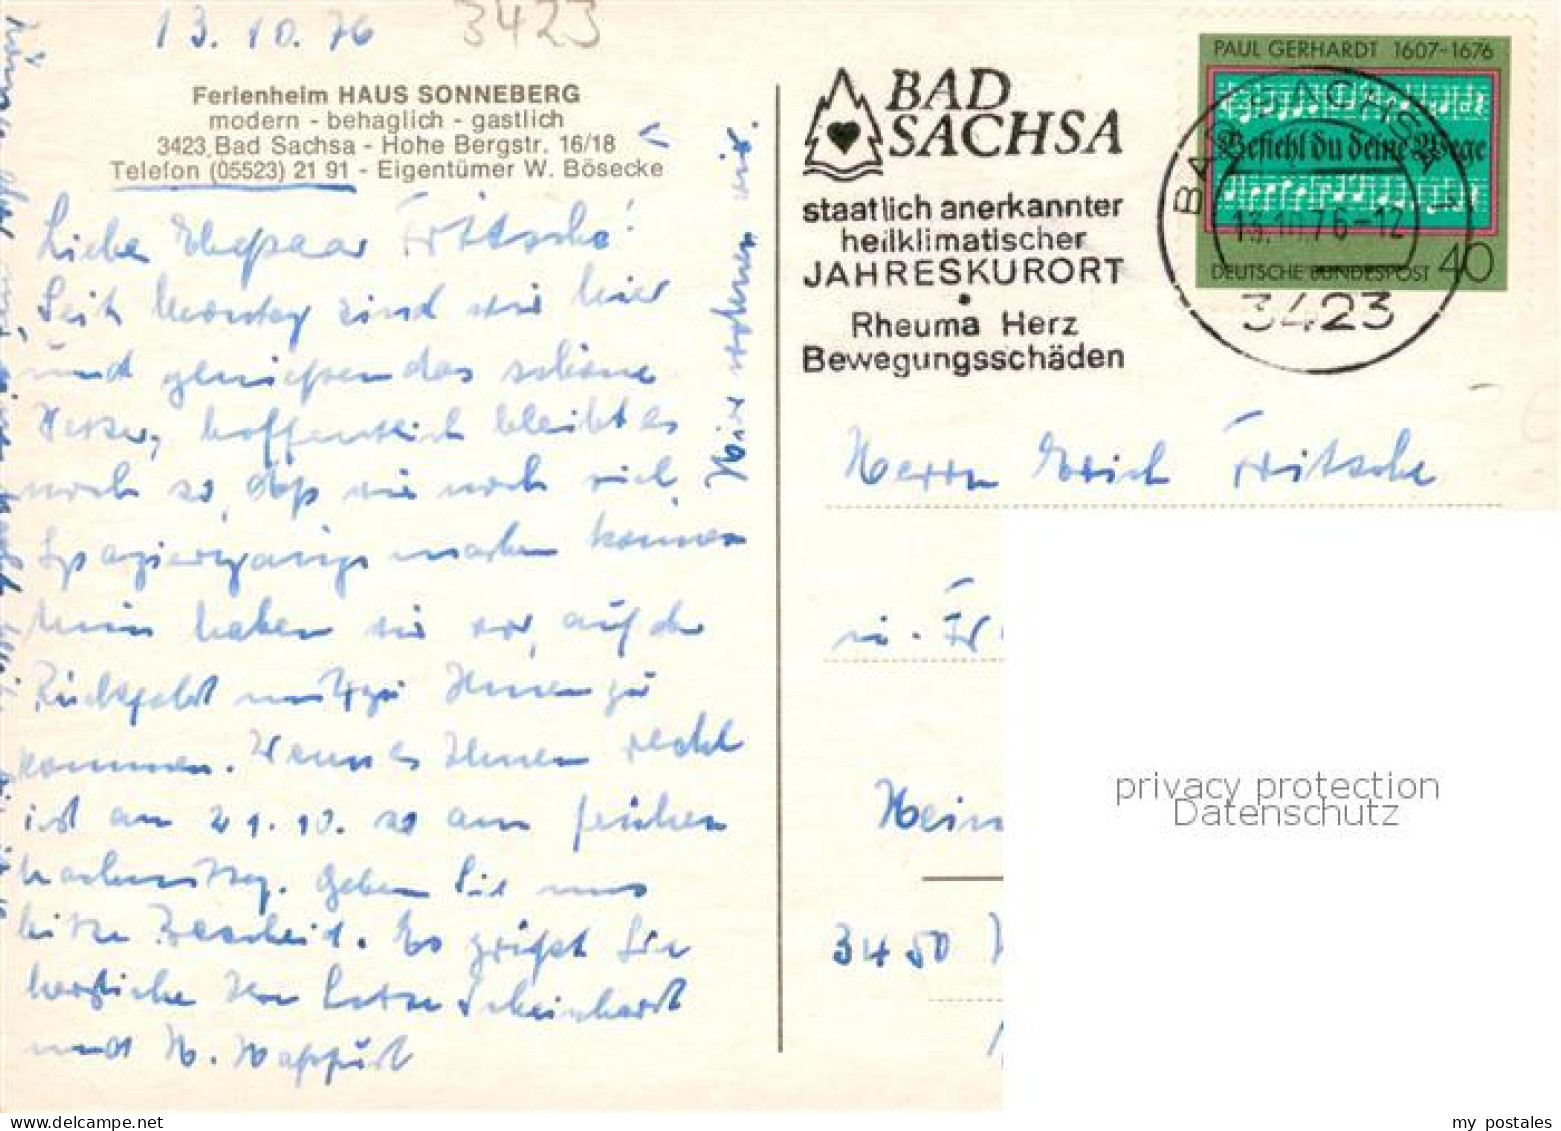 13.10.76
3423
Ferienheim HAUS SONNEBERG
modern - behaglich - gastlich
3423 Bad Sachsa - Hohe Bergstr. 16/18
Telefon (05523) 21 91 - Eigentümer W. Bösecke
Liebe Ehepaar Fritsche!
Seit Montag sind wir hier
und genießen das schöne
Wetter, hoffentlich bleibt es
noch so, daß wir noch viel
Spaziergänge machen können
Nun haben wir vor, auf der
Rückfahrt mit zu Ihnen zu
kommen. Wenn es Ihnen recht
ist am 21.10. so am frühen
Nachmittag. Geben Sie uns
bitte Bescheid. Es grüßt Sie
herzliche Ihre Lotte
und W.
Hier wohnen wir.
BAD
SACHSA
staatlich anerkannter
heilklimatischer
JAHRESKURORT
Rheuma Herz
Bewegungsschäden
PAUL GERHARDT 1607-1676
Befiehl du deine Wege
DEUTSCHE BUNDESPOST 40
BAD SACHSA 1
13.10.76-12
3423
Herrn Erich Fritsche
u. Fr
Hein
3450
privacy protection
Datenschutz
my postales